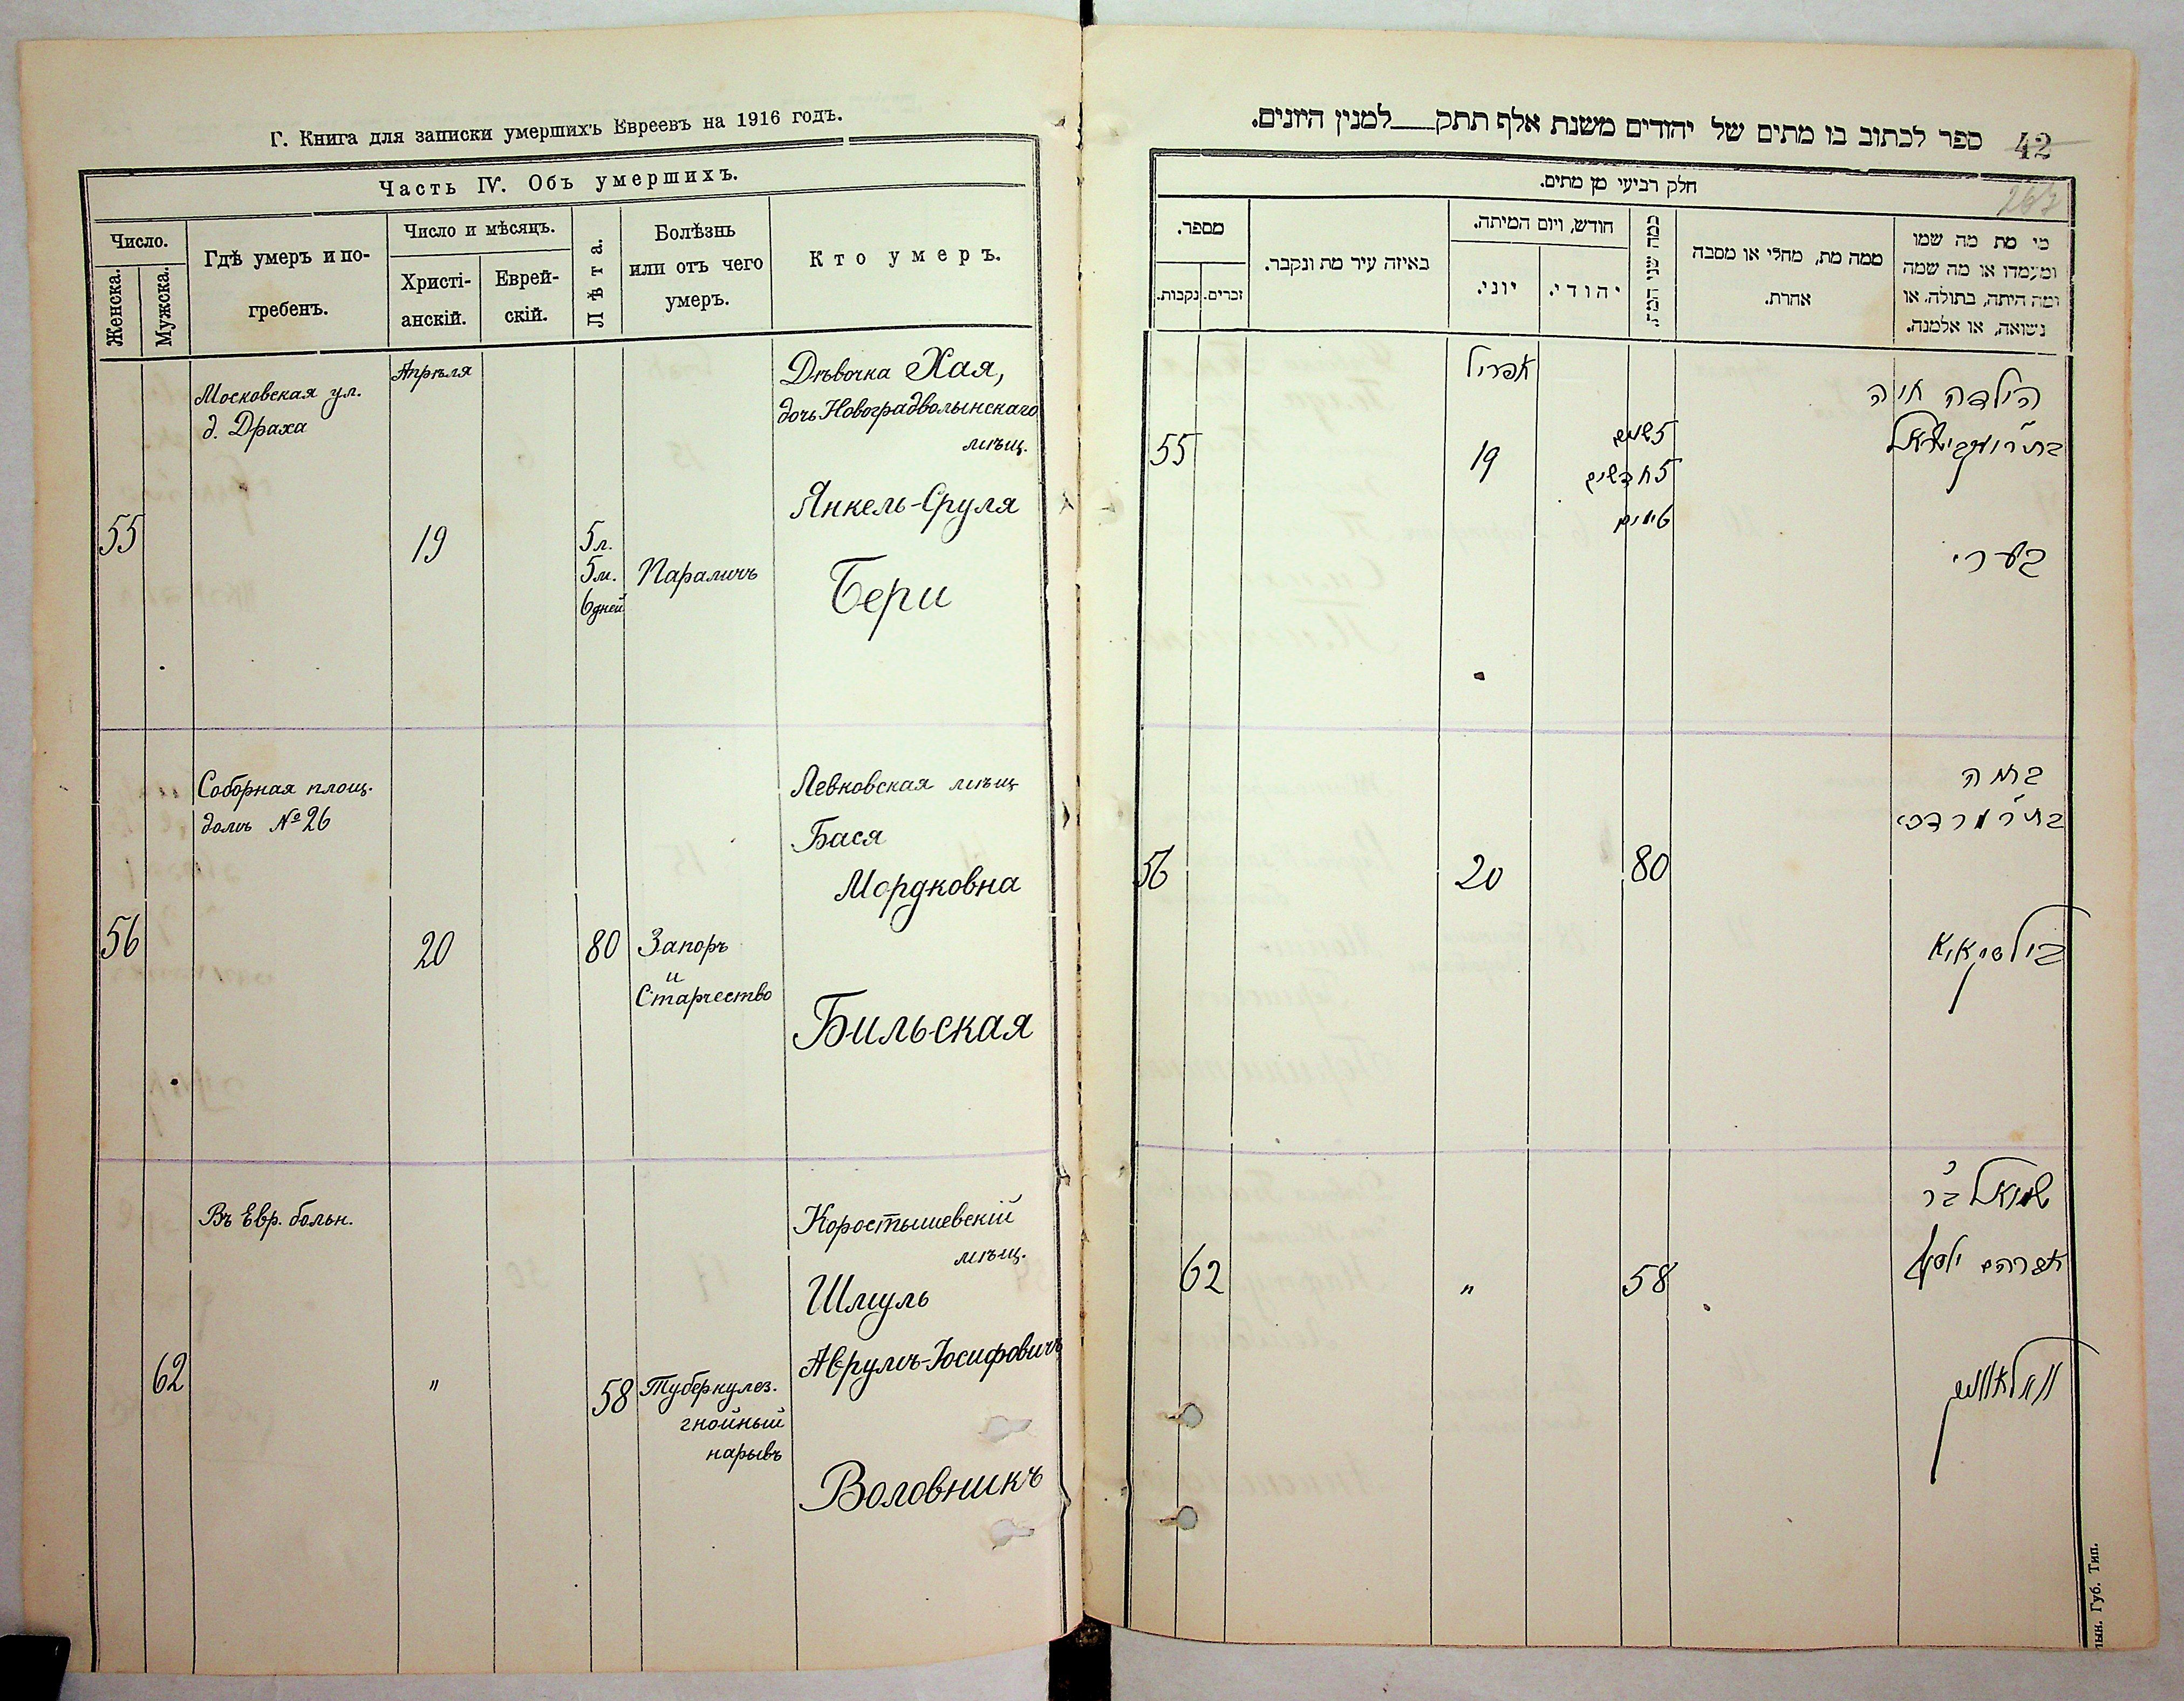 Г. Книга для записки умершихъ Евреевъ на 1916 годъ.
Часть IV. Объ умершихъ.
Число.
Женска.
Мужска.
Гдѣ умеръ и по-
гребенъ.
Число и мѣсяцъ.
Христі-
анскій.
Еврей-
скій.
Лѣта.
Болѣзнь
или отъ чего
умеръ.
Кто умеръ.
Московская ул.
д. Драха
Апрѣля
55
19
5 л.
5 м.
6 дней
Параличъ
Дѣвочка Хая,
дочь Новоградволынскаго
мѣщ.
Янкель-Сруля
Бери
Соборная площ.
домъ № 26
56
20
80
Запоръ
и
Старчество
Левковская мѣщ
Бася
Мордковна
Бильская
Въ Евр. больн.
62
"
58
Туберкулез.
гнойный
нарывъ
Коростышевскій
мѣщ.
Шмуль
Аврумъ-Іосифовичъ
Воловникъ
42
ספר לכתוב בו מתים של יהודים משנת אלף תתק למנין היונים.
חלק רביעי מן מתים.
מספר.
נקבות.
זכרים.
באיזה עיר מת ונקבר.
חודש, ויום המיתה.
יוני.
יהודי.
כמה שני המת
ממה מת, מחלי או מסבה
אחרת.
מי מת מה שמו
ומעמדו או מה שמה
ומה היתה, בתולה, או
נשואה, או אלמנה.
אפריל
55
19
5 שנים
5 חדשים
6 ימים
הילדה חיה
בערי
56
20
80
בת ר' מרדכי
בילסקאיא
62
"
58
שמואל ב"ר
אברהם יוסף
וואלאווניק
лын. Губ. Тип.